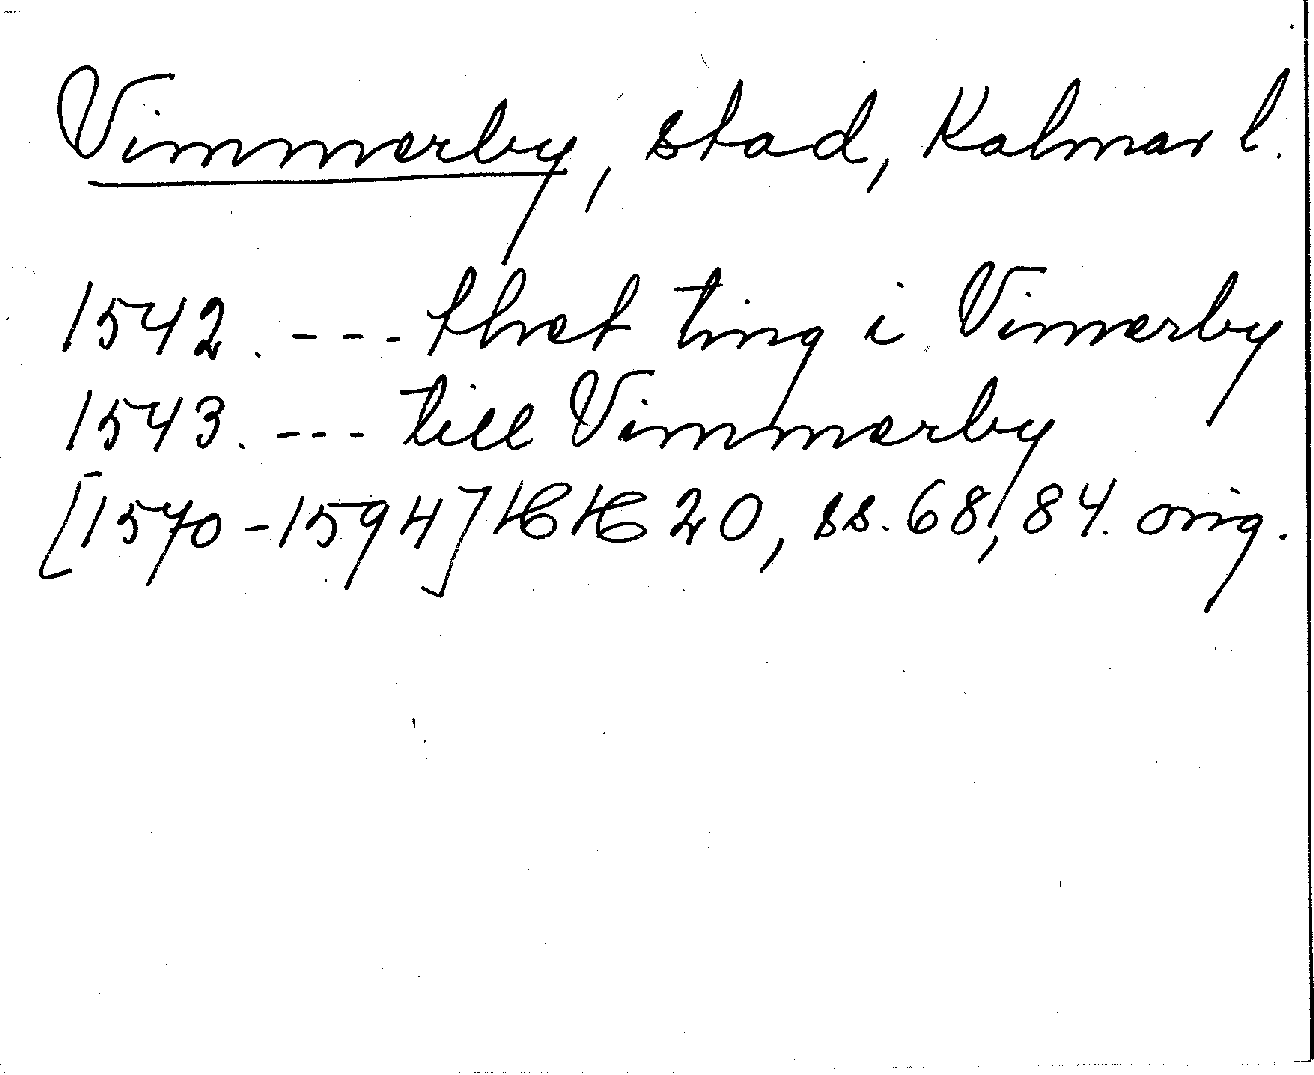 Vimmerby, stad, Kalmar l.
1542. --- thet ting i Vimerby
1543. --- till Vimmerby
[1570-1594] HH 20, ss. 68, 84. orig.